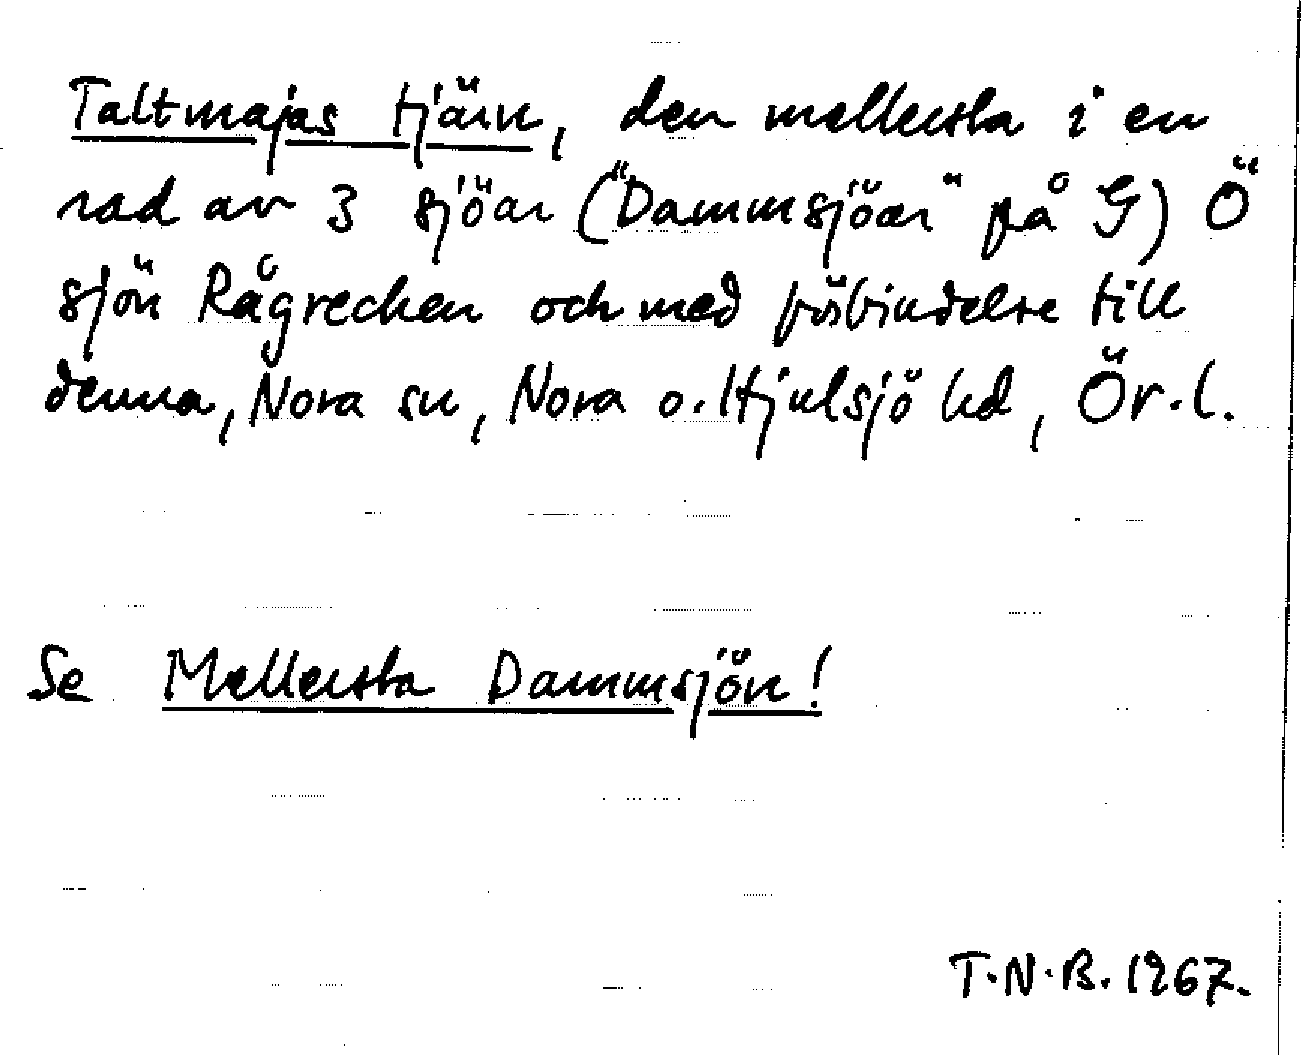 Taltmajas tjärn, den mellersta i en
rad av 3 sjöar ("Dammsjöar" på G) Ö
sjön Rågrecken och med förbindelse till
denna, Nora sn, Nora o. Hjulsjö hd, Ör.l.
Se Mellersta Dammsjön!
T.N.B. 1967.